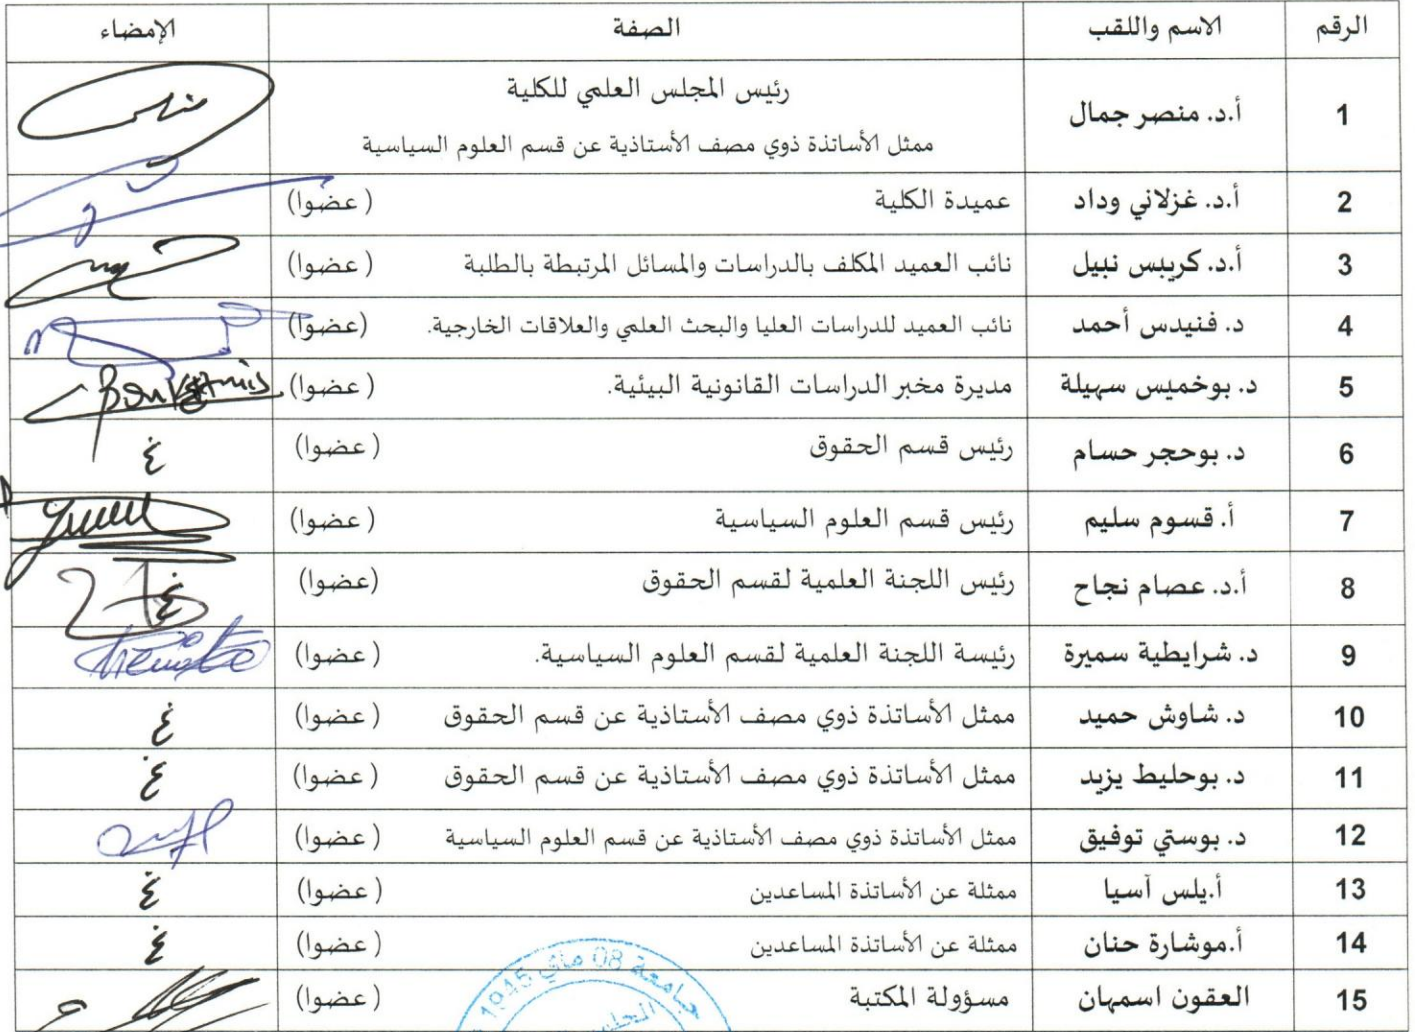 الرقم الاسم واللقب الصفة الإمضاء
رئيس المجلس العلمي للكلية
1 أ.د. منصر جمال
ممثل الأساتذة ذوي مصف الأستاذية عن قسم العلوم السياسية
2 أ.د. غزلاني وداد عميدة الكلية (عضوا)
3 أ.د. كريبس نبيل نائب العميد المكلف بالدراسات والمسائل المرتبطة بالطلبة (عضوا)
4 د. فنيدس أحمد نائب العميد للدراسات العليا والبحث العلمي والعلاقات الخارجية. (عضوا)
5 د. بوخميس سهيلة مديرة مخبر الدراسات القانونية البيئية. (عضوا)
6 د. بوحجر حسام رئيس قسم الحقوق (عضوا) غ
7 أ. قسوم سليم رئيس قسم العلوم السياسية (عضوا)
8 أ.د. عصام نجاح رئيس اللجنة العلمية لقسم الحقوق (عضوا) غ
9 د. شرايطية سميرة رئيسة اللجنة العلمية لقسم العلوم السياسية. (عضوا)
10 د. شاوش حميد ممثل الأساتذة ذوي مصف الأستاذية عن قسم الحقوق (عضوا) غ
11 د. بوحليط يزيد ممثل الأساتذة ذوي مصف الأستاذية عن قسم الحقوق (عضوا) غ
12 د. بوستي توفيق ممثل الأساتذة ذوي مصف الأستاذية عن قسم العلوم السياسية (عضوا)
13 أ.يلس آسيا ممثلة عن الأساتذة المساعدين (عضوا) غ
14 أ.موشارة حنان ممثلة عن الأساتذة المساعدين (عضوا) غ
15 العقون اسمهان مسؤولة المكتبة (عضوا)
جامعة 08 ماي 1945